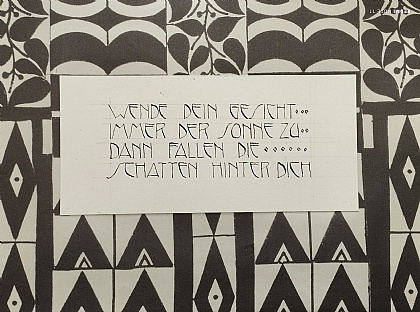 WENDE DEIN GESICHT...
IMMER DER SONNE ZU..
DANN FALLEN DIE ......
SCHATTEN HINTER DICH